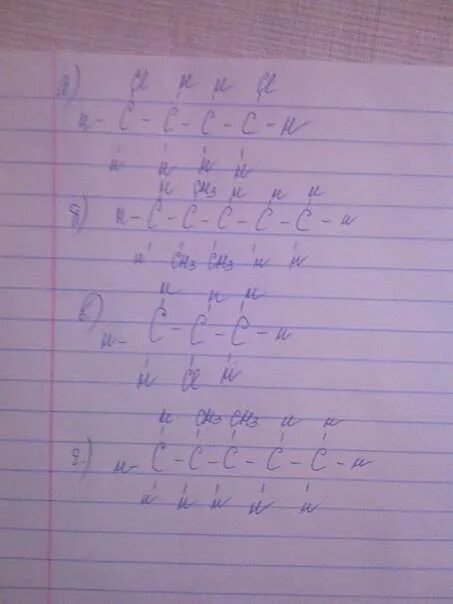 а) Cl H H Cl
H - C - C - C - C - H
H H H H
H CH3 H H H
б) H - C - C - C - C - C - H
H CH3 CH3 H H
H H H
в) H - C - C - C - H
H Cl H
H CH3 CH3 H H
г) H - C - C - C - C - C - H
H H H H H